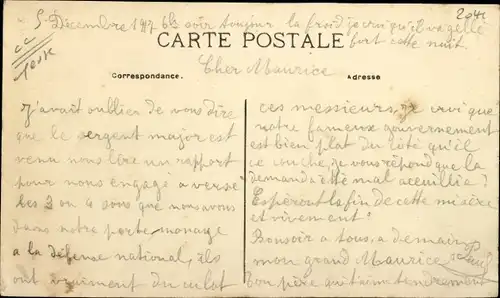 5 Décembre 1917 6h soir toujour la froid je croi qu'il va gelle
fort cette nuit.
CARTE POSTALE
Cher Maurice
Correspondance.
Adresse
J'avait oublier de vous dire
que le sergent major est
venu nous lire un rapport
pour nous engagé a versé
les 3 on 4 sous que nous avons
dans notre porte monage
a la défense national, ils
ont vraiment du culot
ces messieurs, je croi que
notre fameux gouvernement
est bien plat du côté qu'il
ce couche, je vous répond que la
demande a été mal aceuillie?
Espéront la fin de cette misère
et vivement!
Bonsoir a tous, a demain
mon grand Maurice
Ton père qui t'aime tendrement
Paul